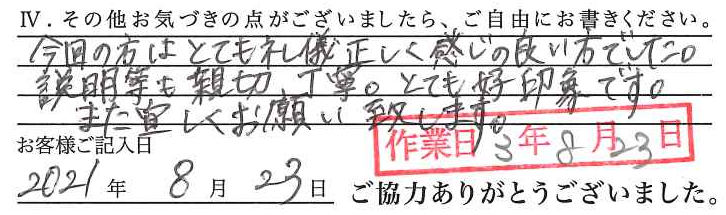 Ⅳ．その他お気づきの点がございましたら、ご自由にお書きください。
今回の方はとても礼儀正しく感じの良い方でした。
説明等も親切、丁寧。とても好印象です。
また宜しくお願い致します。
作業日 3年8月23日
お客様ご記入日
2021年 8月 23日 ご協力ありがとうございました。